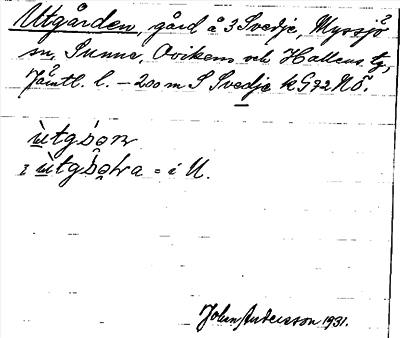 Utgården, gård å 3 Svedje, Myssjö
sn, Sunne, Ovikens och Hallens tg,
Jämtl. l. – 200 m S Svedje kG72NÖ.
ùtgɔ̀n
i ùtgɔ̀ra = i U.
Johan Andersson 1931.